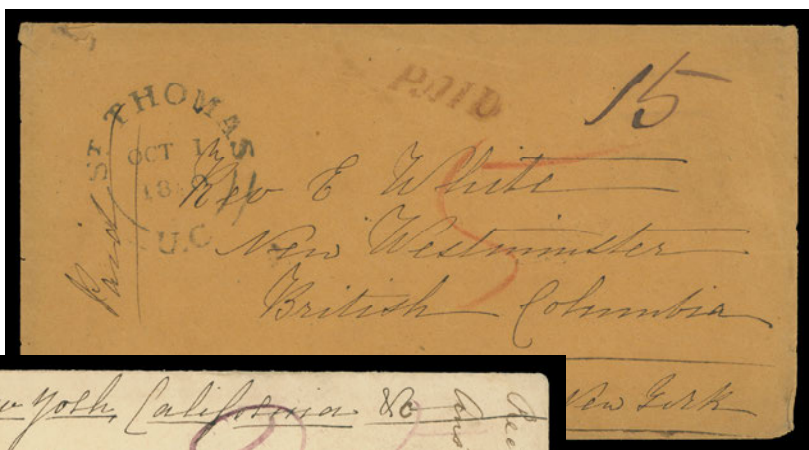 PAID
15
ST. THOMAS
OCT 1
18
U.C
Paid
5
Rev E White
New Westminster
British Columbia
New York
York, California &c